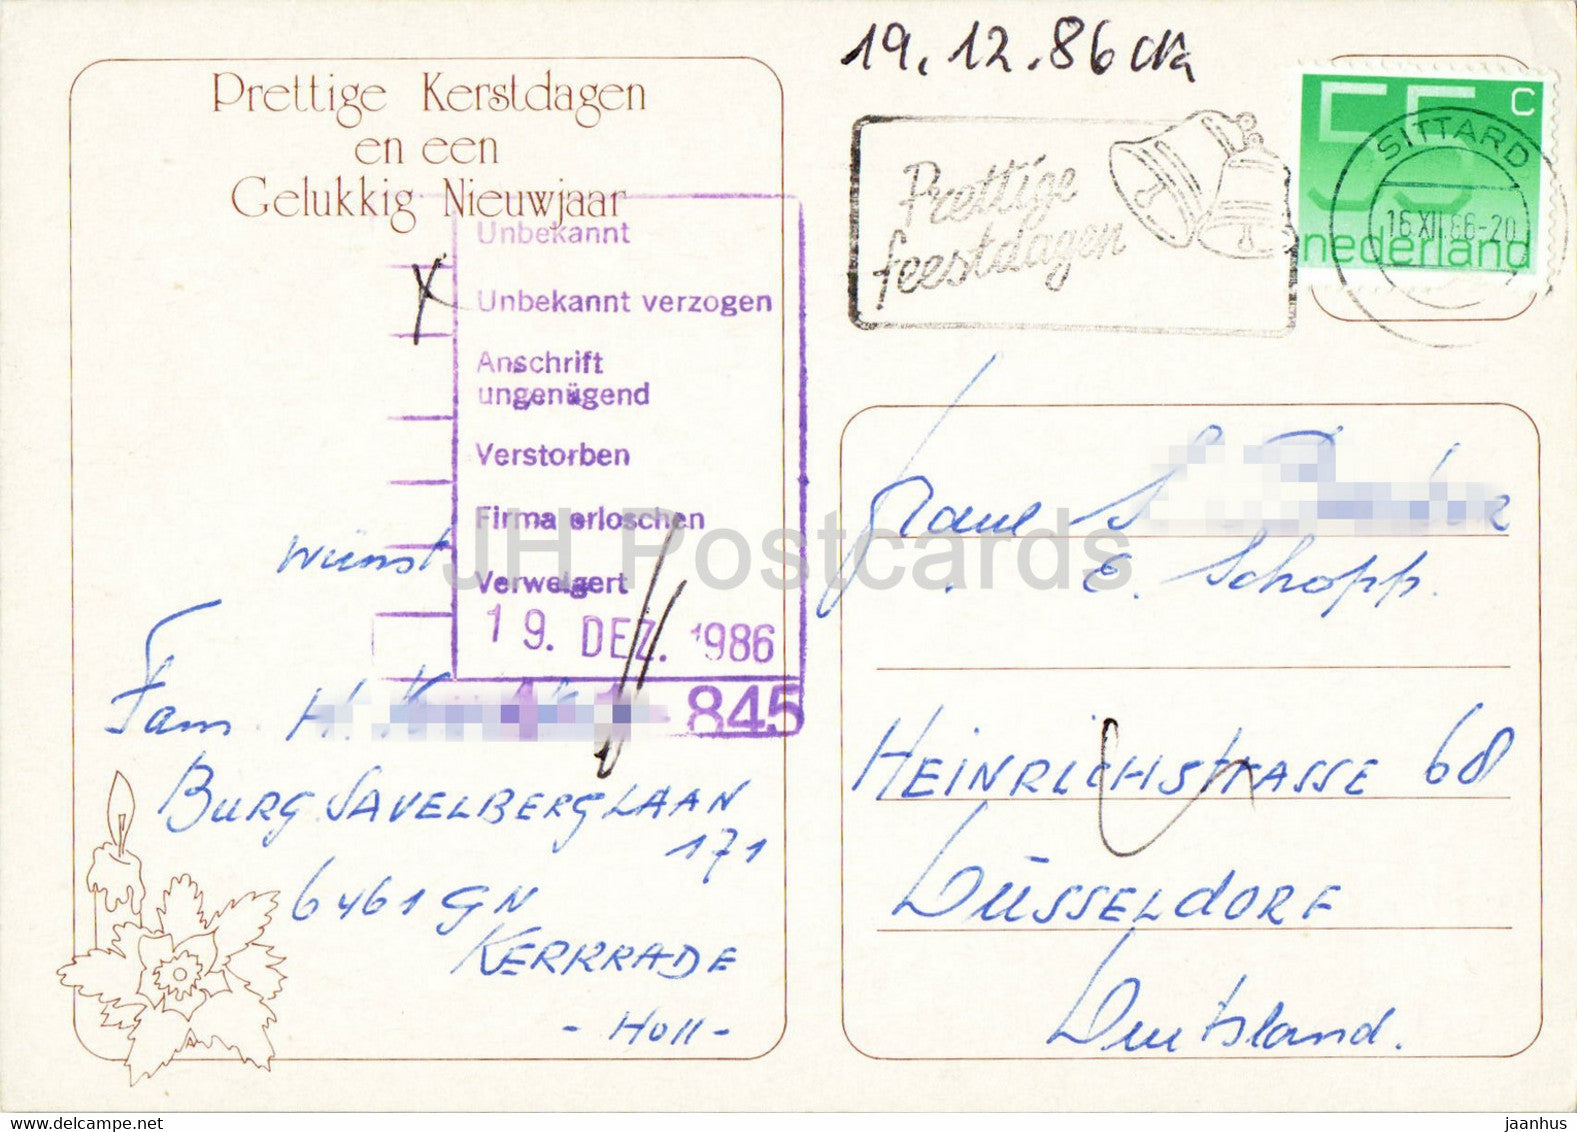 Prettige Kerstdagen
en een
Gelukkig Nieuwjaar
Unbekannt
Unbekannt verzogen
Anschrift
ungenügend
Verstorben
Firma erloschen
Verweigert
19. DEZ. 1986
845
wünst
Fam. H.
BURG SAVELBERGLAAN
171
6461 GN
KERKRADE
- Holl -
19.12.86
Prettige
feestdagen
55 c
nederland
SITTARD
16.XII.86-20
E. Schopp.
HEINRICHSTRASSE 68
DÜSSELDORF
Deutsland.
JH Postcards
delcampe.net
jaanhus